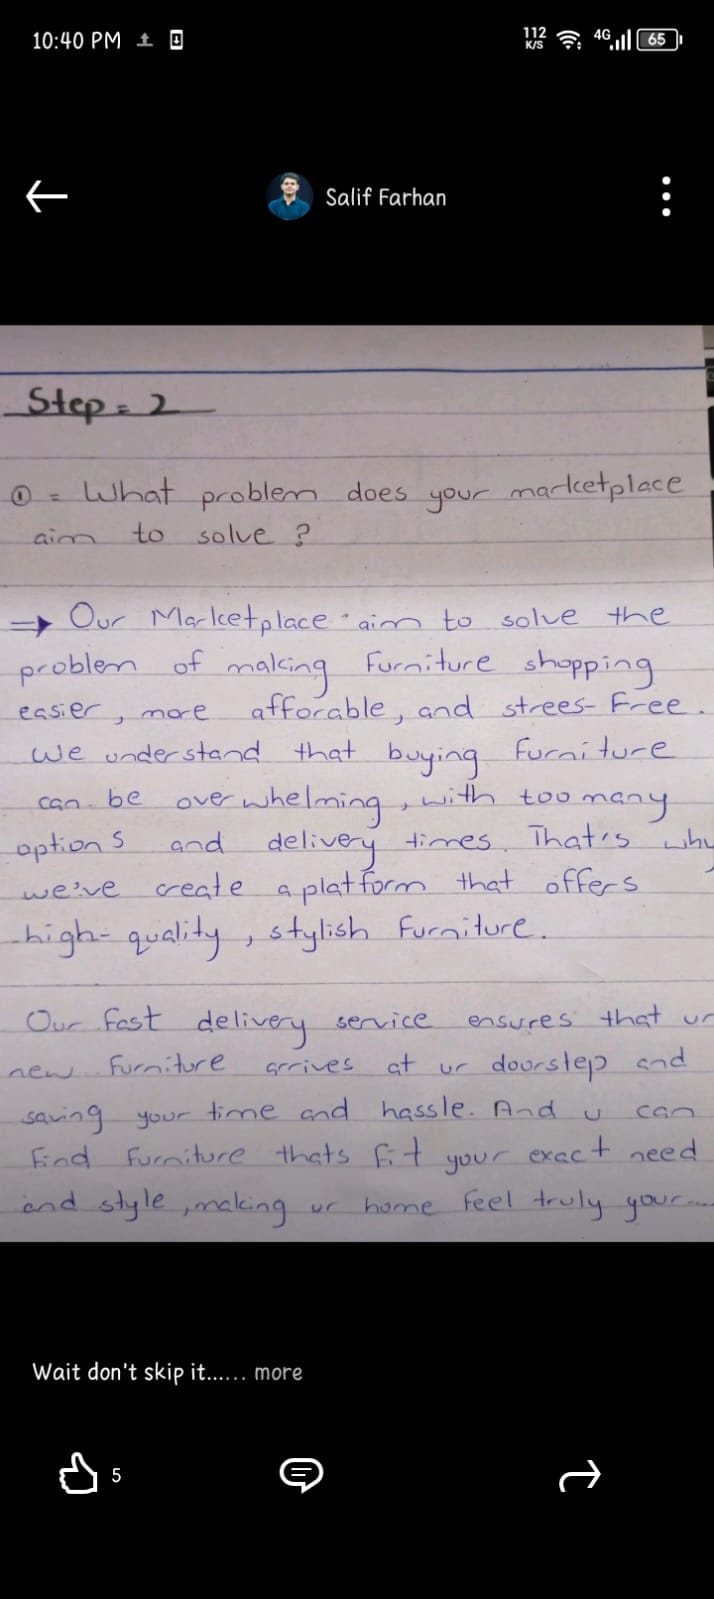 10:40 PM
112
K/S
4G
65
Salif Farhan
Step = 2
① = What problem does your marketplace
aim to solve ?
⇒ Our Marketplace aim to solve the
problem of making Furniture shopping
easier, more afforable, and strees-Free.
We understand that buying Furniture
can be overwhelming, with too many
options and delivery times. That's why
we've create a platform that offers
high-quality, stylish Furniture.
Our fast delivery service ensures that ur
new Furniture arrives at ur doorstep and
saving your time and hassle. And u can
Find Furniture thats fit your exact need
and style, making ur home Feel truly your....
Wait don't skip it...... more
5